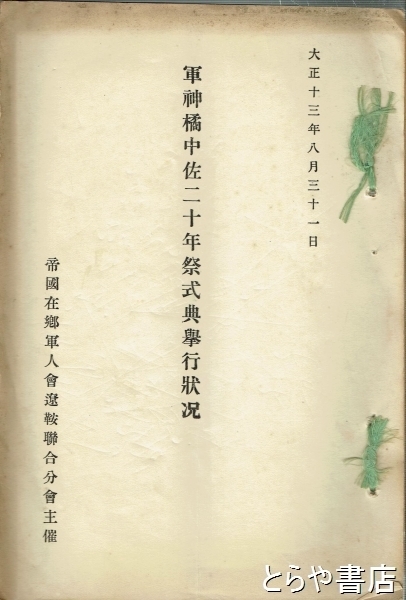 大正十三年八月三十一日
軍神橘中佐二十年祭式典擧行狀况
帝國在鄕軍人會遼鞍聯合分會主催
とらや書店